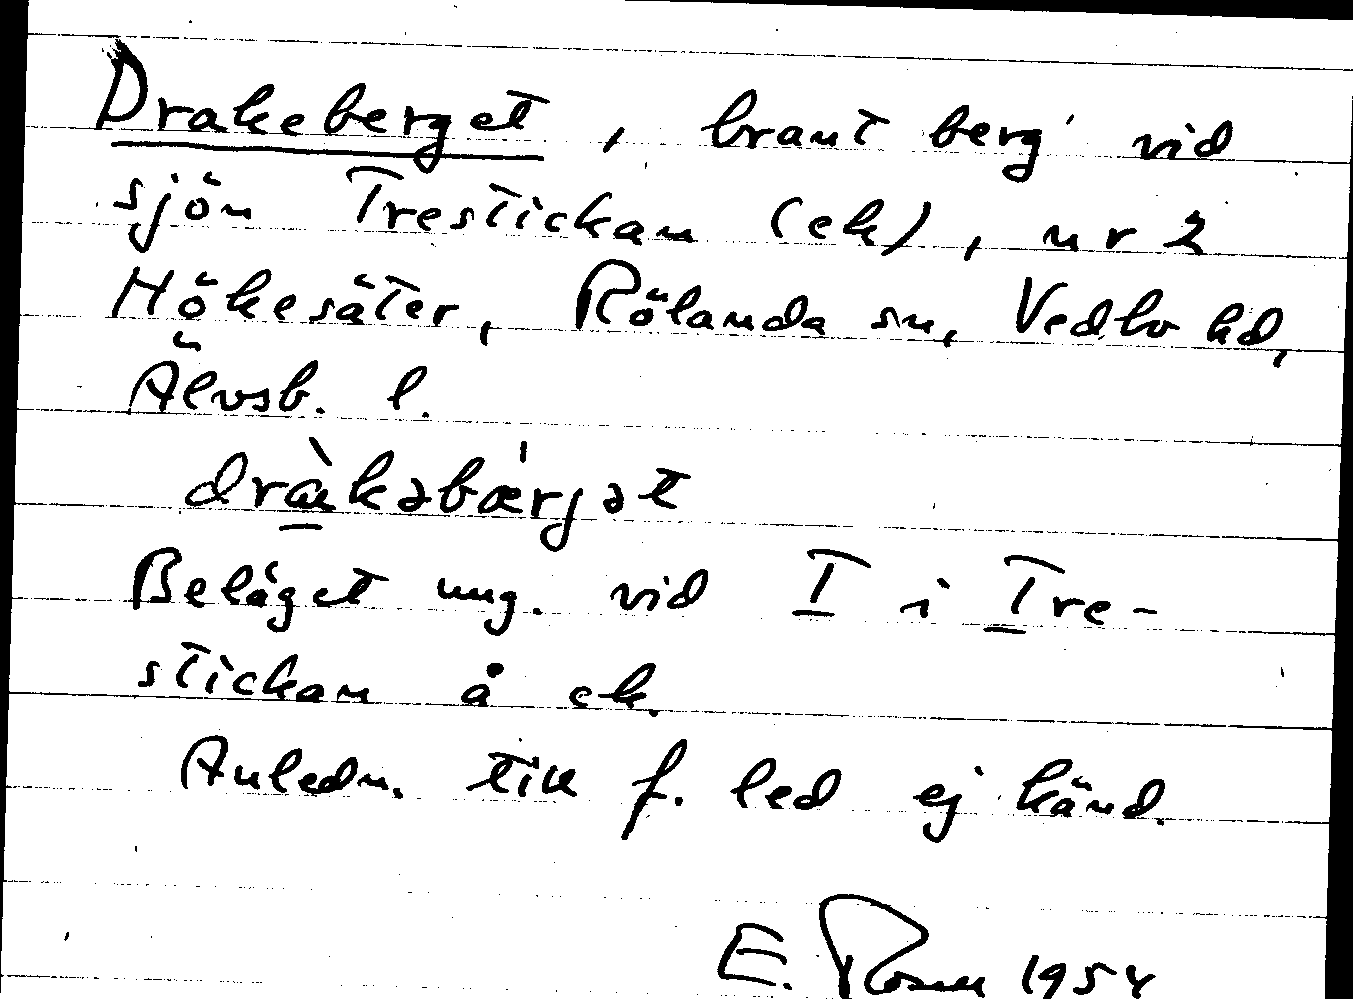 Drakeberget, brant berg vid
sjön Trestickan (ek), nr 2
Hökesäter, Rölanda sn, Vedbo hd,
Älvsb. l.
drà̱kəbæ̍rjət
Beläget ung. vid T i Tre-
stickan å ek.
Anledn. till f. led ej känd.
E. Rosell 1954